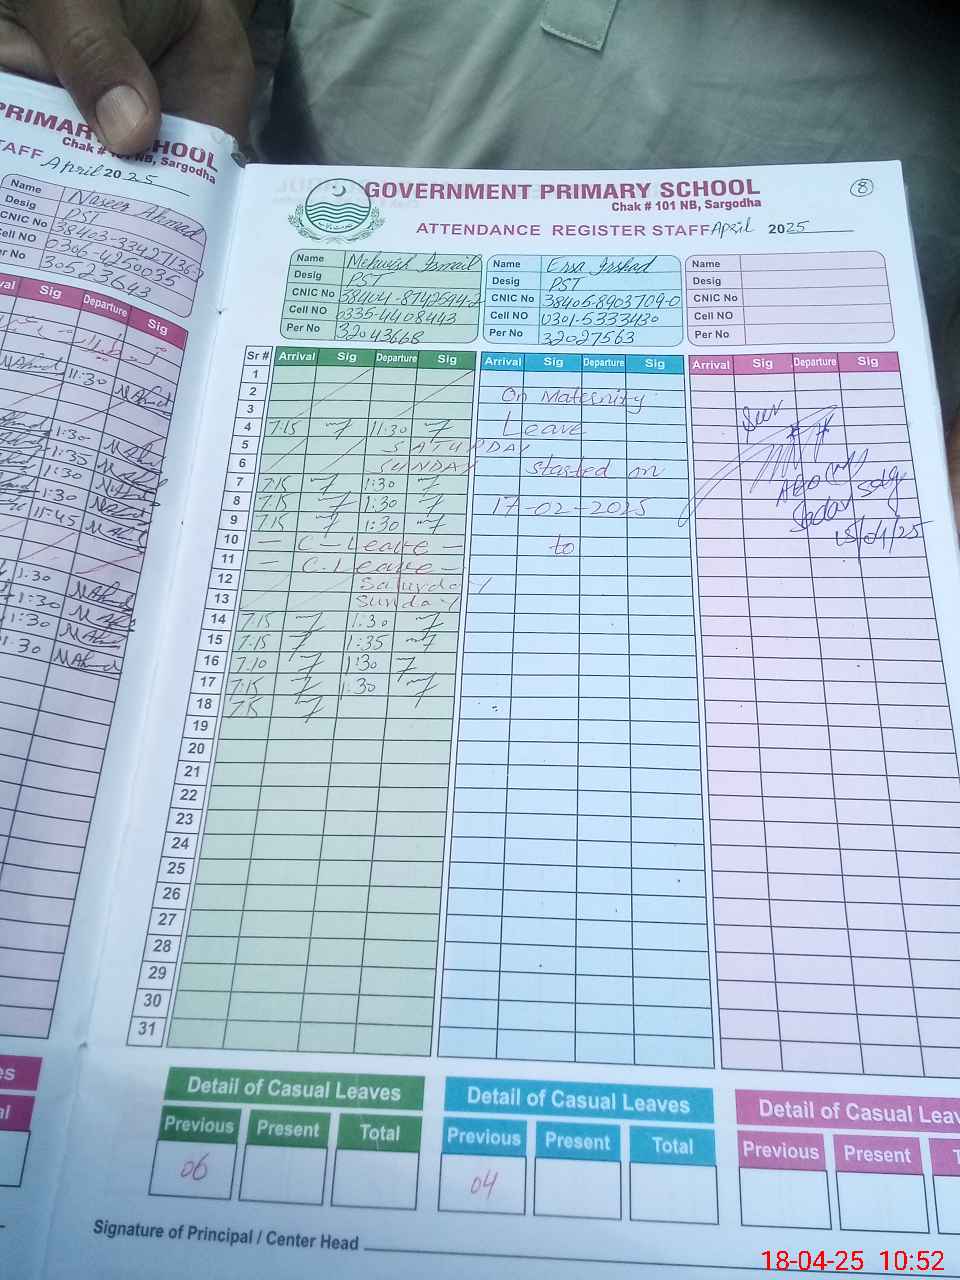 PRIMARY SCHOOL
Chak # 101 NB, Sargodha
STAFF April 2025
Name Naseer Ahmad
Desig PST
CNIC No 38403-3342713
Cell NO 0306-4250035
Per No 30523643
Sig Departure Sig
11:30
1:30
1:30
1:30
1:30
11:45
1:30
1:30
1:30
1:30
GOVERNMENT PRIMARY SCHOOL
8
Chak # 101 NB, Sargodha
ATTENDANCE REGISTER STAFF April 2025
Name Mehwish Ismail Name Essa Irshad Name
Desig PST Desig PST Desig
CNIC No 38404-8742544-2 CNIC No 38405-8903709-0 CNIC No
Cell NO 0335-4408443 Cell NO 0301-5333430 Cell NO
Per No 32043668 Per No 32027563 Per No
Sr # Arrival Sig Departure Sig Arrival Sig Departure Sig Arrival Sig Departure Sig
1
2 On Maternity
3
4 7:15 11:30 Leave
5 SATURDAY
6 SUNDAY started on
7 7:15 1:30
8 7:15 1:30 17-02-2025
9 7:15 1:30
10 — C-Leave — to
11 — C.Leave —
12 Saturday
13 Sunday
14 7:15 1:30
15 7:15 1:35
16 7:10 1:30
17 7:15 1:30
18 7:15
19
20
21
22
23
24
25
26
27
28
29
30
31
AEO
15/04/25
Detail of Casual Leaves Detail of Casual Leaves Detail of Casual Leav
Previous Present Total Previous Present Total Previous Present T
06 04
Signature of Principal / Center Head
18-04-25 10:52